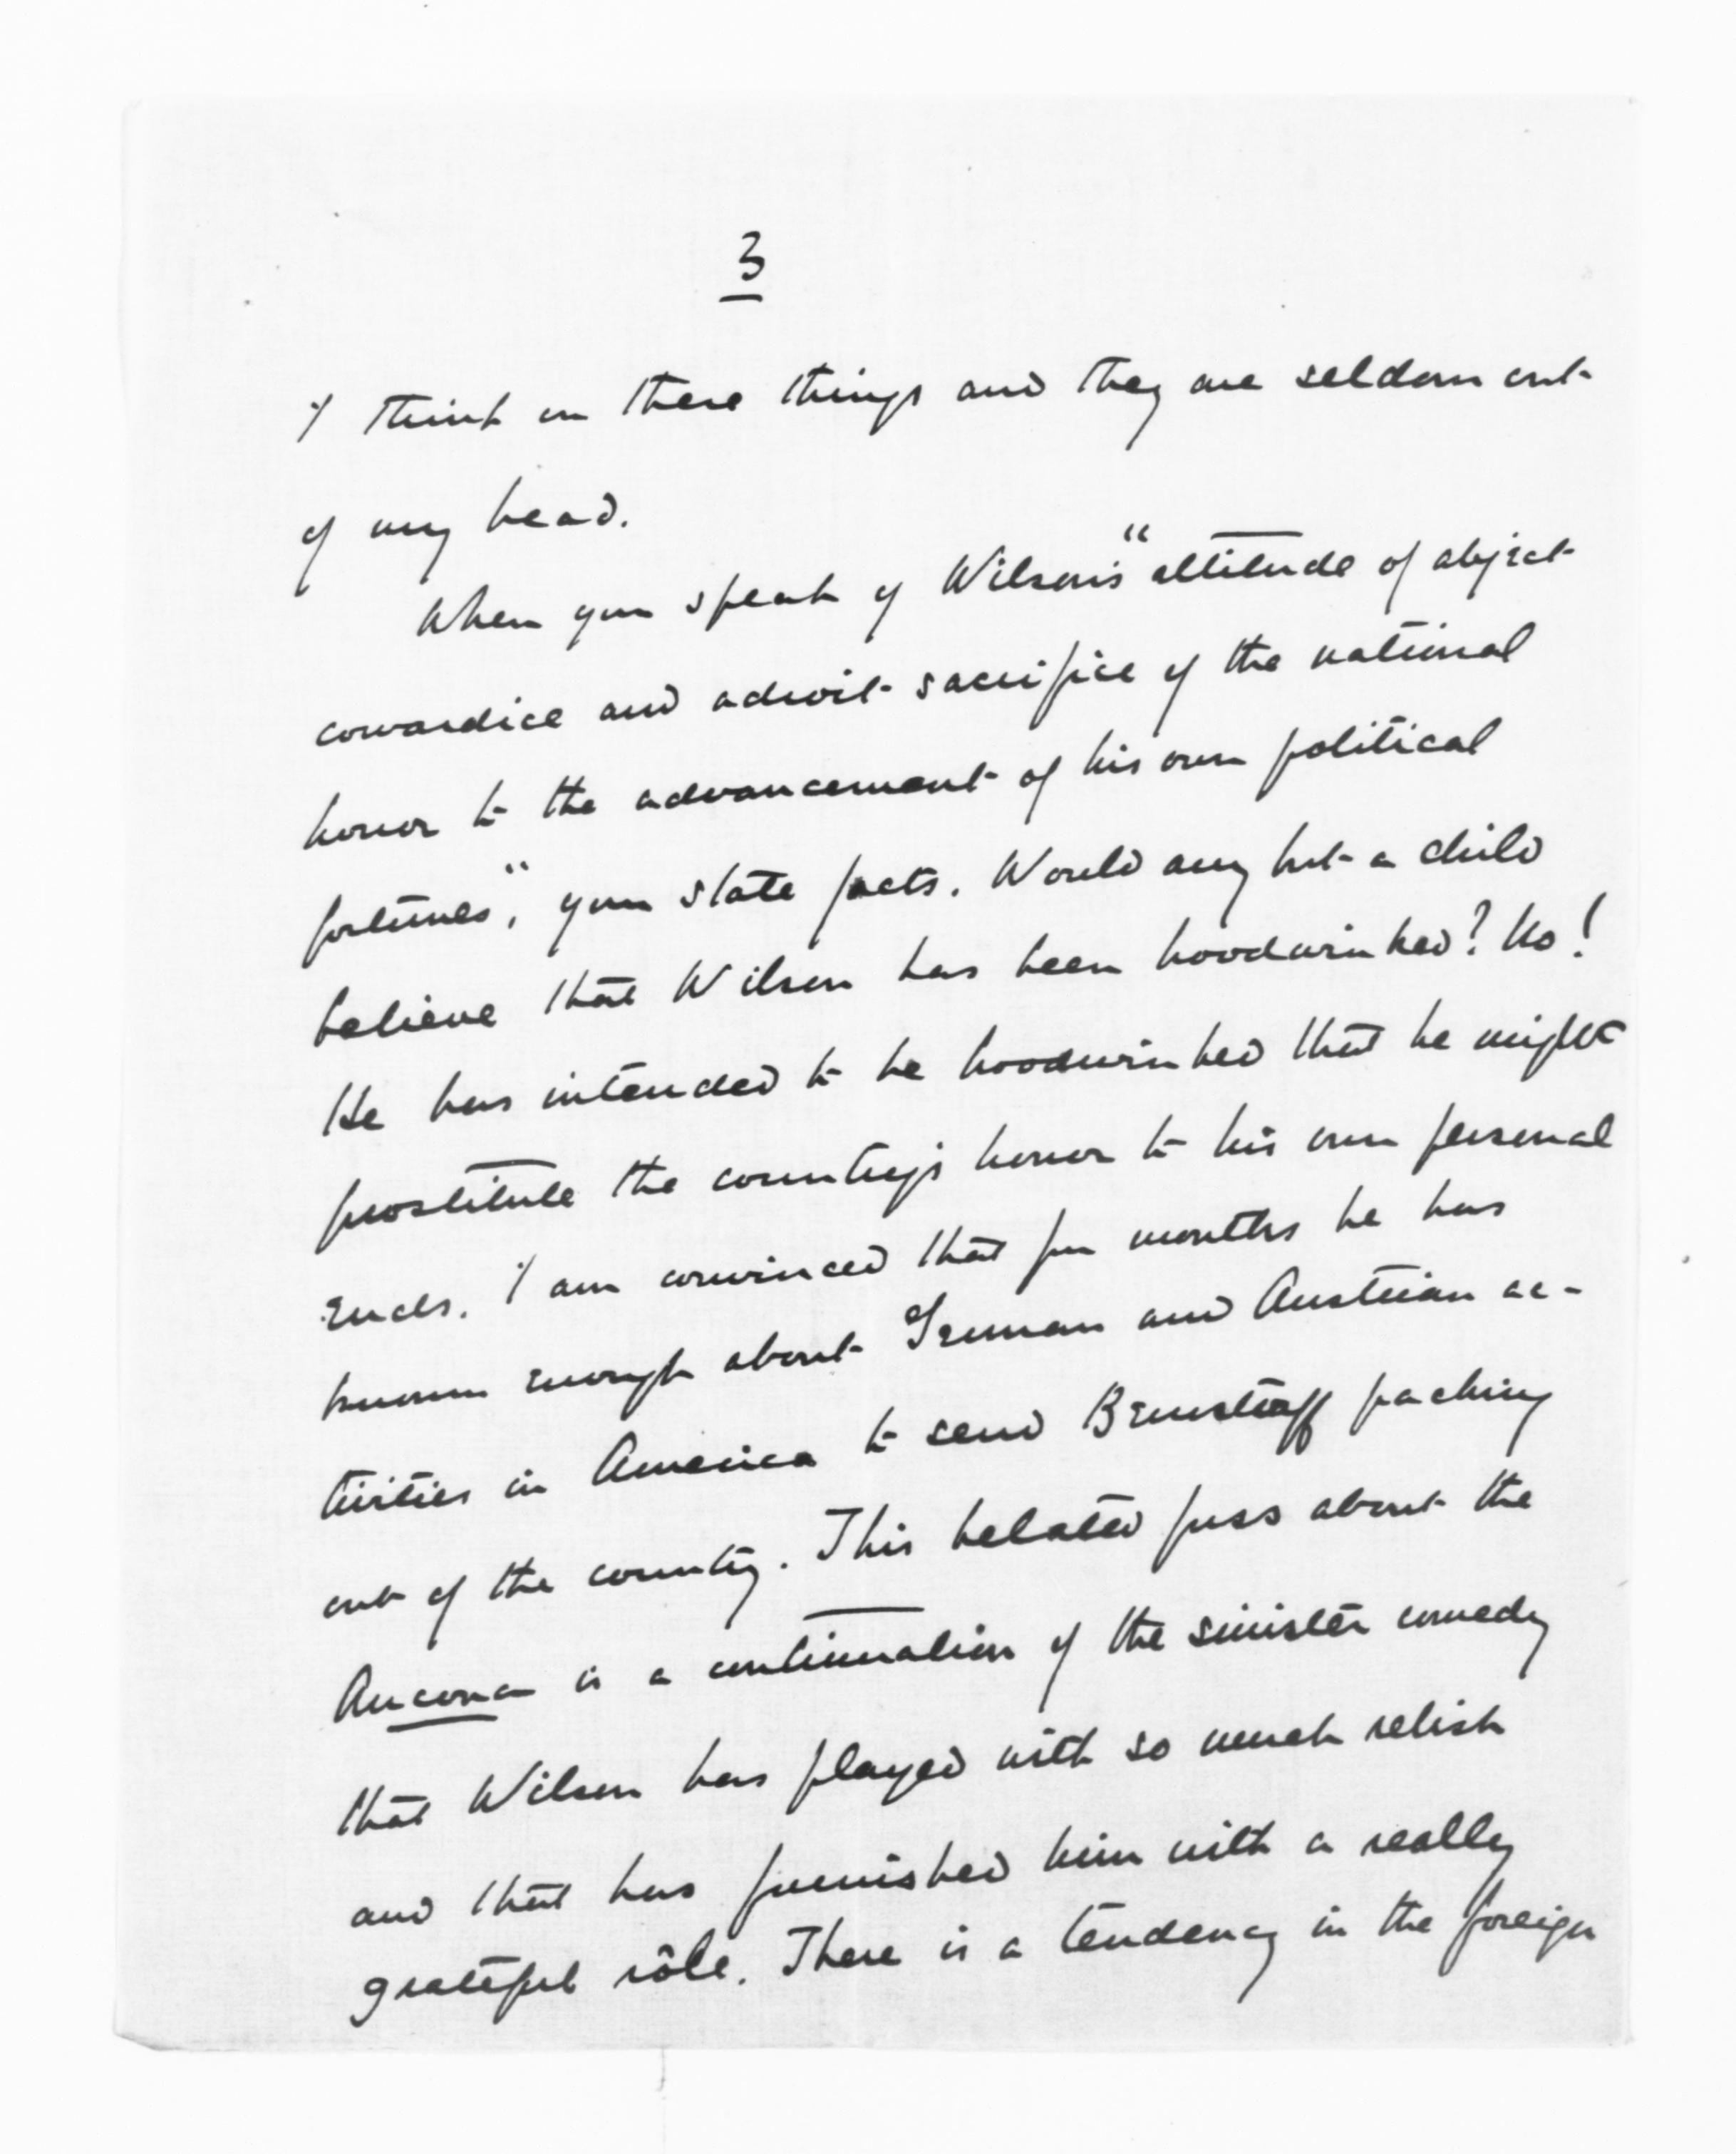 3
I think on these things and they are seldom out
of my head.
When you speak of Wilson's "attitude of abject
cowardice and adroit sacrifice of the national
honor to the advancement of his own political
fortunes", you state facts. Would any but a child
believe that Wilson has been hoodwinked? No!
He has intended to be hoodwinked that he might
prostitute the country's honor to his own personal
ends. I am convinced that for months he has
known enough about German and Austrian ac-
tivities in America to send Bernstorff packing
out of the country. This belated fuss about the
Ancona is a continuation of the sinister comedy
that Wilson has played with so much relish
and that has furnished him with a really
grateful rôle. There is a tendency in the foreign